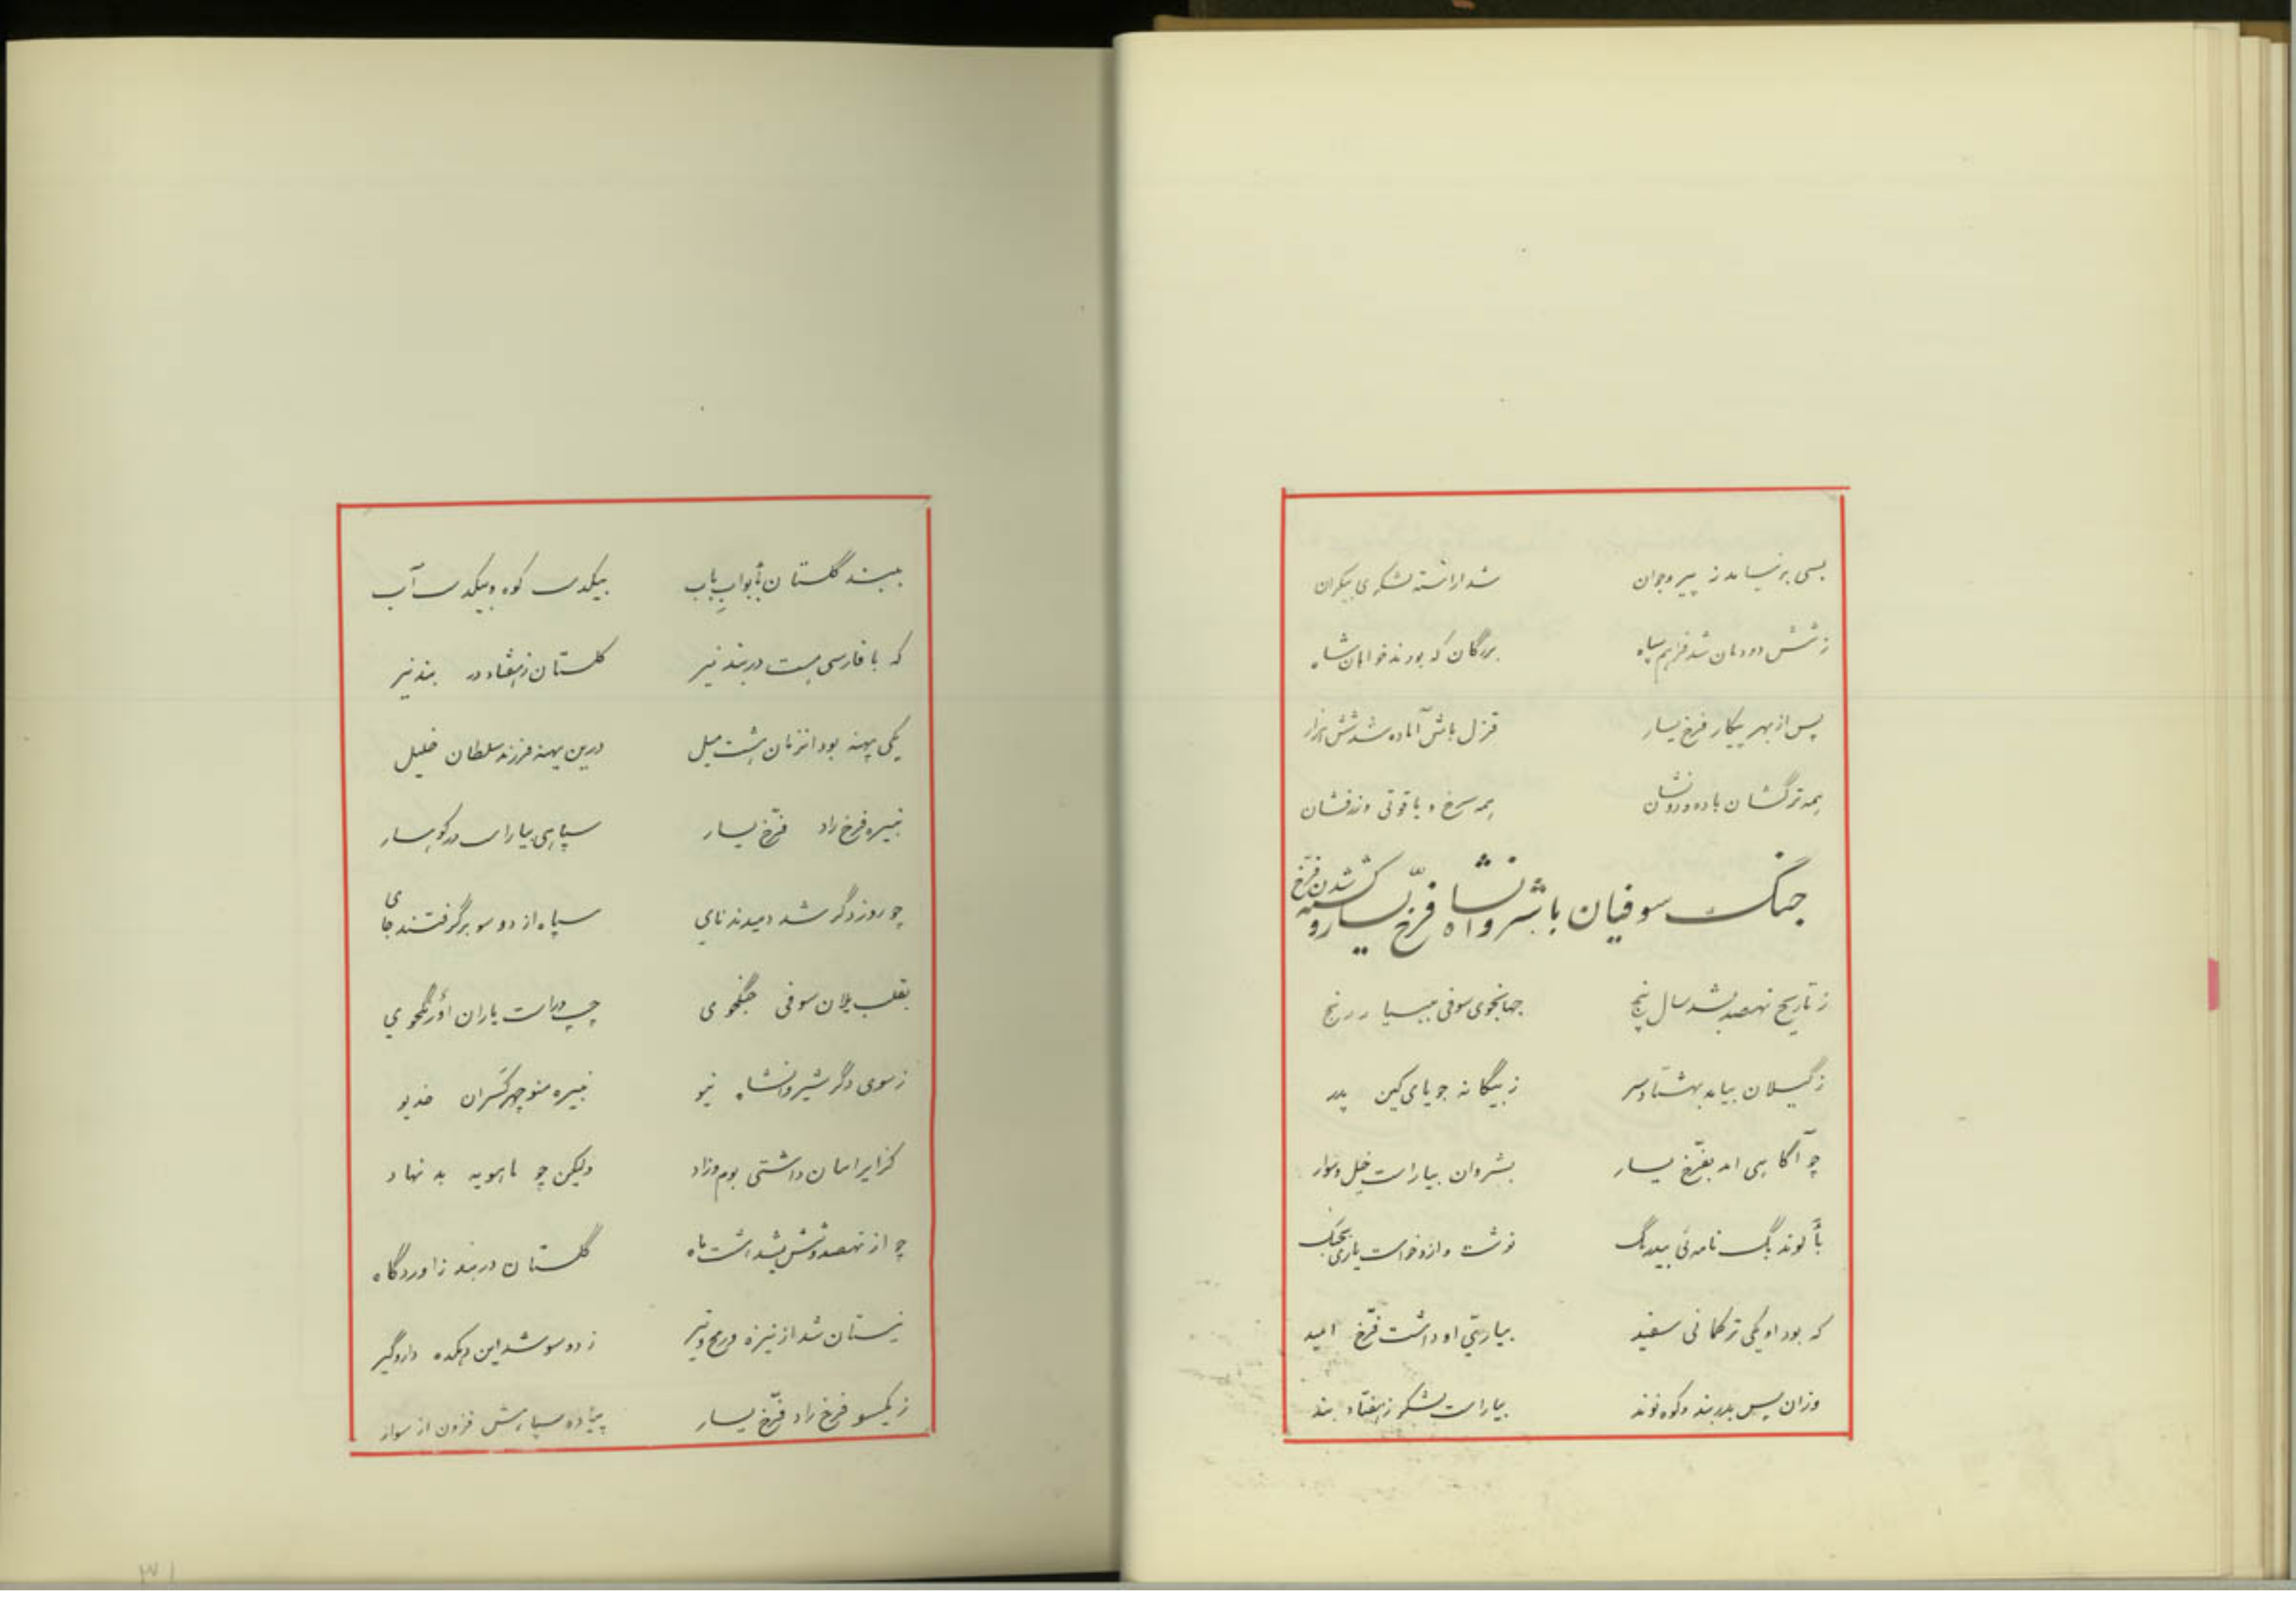 بسی برنیامد ز پیر و جوان شد اراسته لشکری بیکران
ز شش دودمان شد فراهم سپاه بزرگان که بودند خواهان شاه
پس از بهر پیکار فرخ یسار قزل باش آماده شد شش هزار
همه ترگشان با ده و دو نشان همه سرخ و یاقوتی و زرفشان
جنگ سوفیان با شروانشاه فرّخ یسار و کشته شدن فرّخ
ز تاریخ نهصد بشد سال پنج جهانجوی سوفی ببسیار رنج
ز گیلان بیامد بهشتاد سر ز بیگانه جویای کین پدر
چو آگاهی امد بفرّخ یسار بشروان بیاراست خیل و سوار
بألوند بگ نامه‌ئی بیدرنگ نوشت و ازو خواست یاری بجنگ
که بود او یکی ترکمانی سفید بیاریّ او داشت فرّخ امید
وزان پس بدربند و کوه نوند بیاراست لشکر ز هفتاد بند
ببند گلستان بأبواب باب بیکدست کوه و بیکدست آب
که با فارسی هست دربند نیز گلستان ز هفتاد در بند نیز
یکی پهنه بود انزمان هشت میل درین پهنه فرزند سلطان خلیل
نبیره فرخ راد فرّخ یسار سپاهی بیاراست در کوهسار
چو روز دگر شد دمیدند نای سپاه از دو سو برگرفتند جای
بقلب یلان سوفی جنگجوی چپ و راست یاران اورنگجوی
ز سوی دگر شیروانشاه نیو نبیره منوچهر کسران خدیو
کز ایرامان داشتی بوم و زاد ولیکن چو ماهویه بد نهاد
چو از نهصد و شش بشد هشت ماه گلستان دربند ز اوردگاه
نیستان شد از نیزه و رمح و تیر ز دو سو شد این دهکده داروگیر
ز یکسو فرخ راد فرّخ یسار پیاده سپاهش فزون از سوار
۳۱